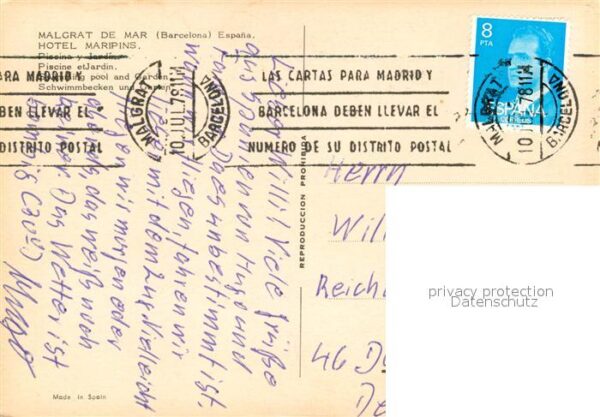 MALGRAT DE MAR (Barcelona) España.
HOTEL MARIPINS.
Piscina y Jardín.
Piscine et Jardin.
Swimming pool and Garden.
Schwimmbecken und Garten.
ARA MADRID Y
BEN LLEVAR EL
DISTRITO POSTAL
MALGRAT
10 JUL. 78 11M
BARCELONA
LAS CARTAS PARA MADRID Y
BARCELONA DEBEN LLEVAR EL
NUMERO DE SU DISTRITO POSTAL
8
PTA
ESPAÑA
CORREOS
MALGRAT
10 78 11M
BARCELONA
Lieber Willi! Viele Grüße
aus Spanien von Hugo und
Da es unbestimmt ist,
wann wir fliegen, fahren wir
mit dem Zug. Vielleicht
fliegen wir morgen oder
das weiß noch
keiner. Das Wetter ist
heiß (30°)
Hugo
REPRODUCCION PROHIBIDA
Herrn
Will
Reich
46 D
De
privacy protection
Datenschutz
Made in Spain